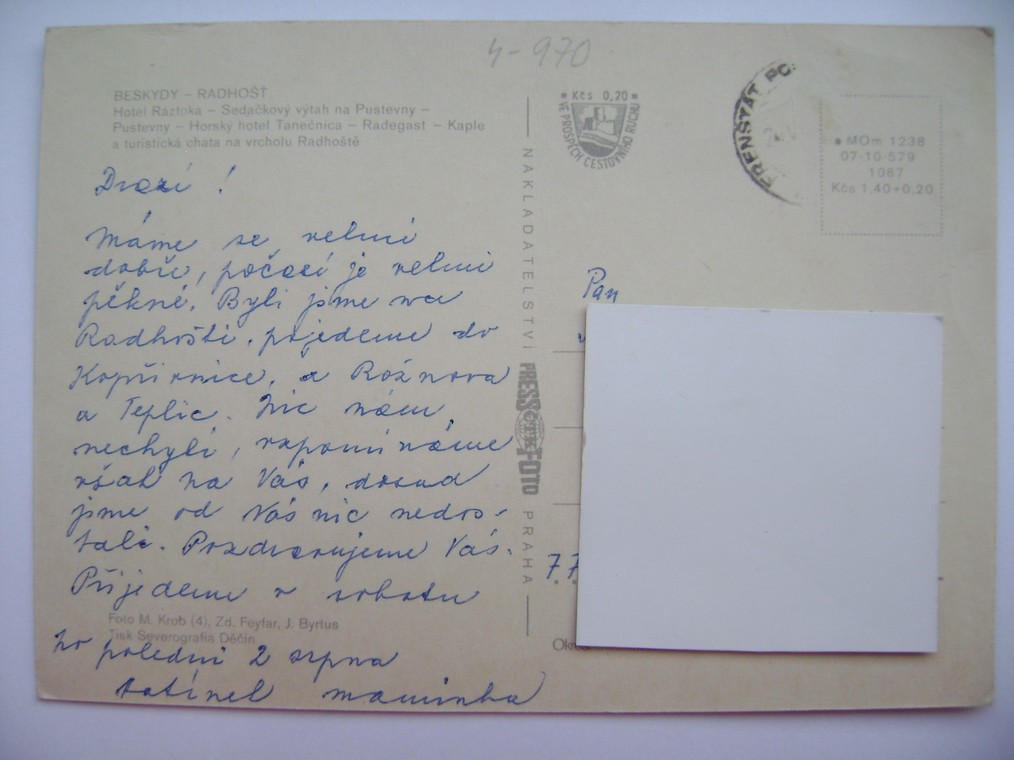 4-970
BESKYDY – RADHOŠŤ
Hotel Ráztoka – Sedačkový výtah na Pustevny –
Pustevny – Horský hotel Tanečnica – Radegast – Kaple
a turistická chata na vrcholu Radhoště
Drazí !
Máme se velmi
dobře, počasí je velmi
pěkné. Byli jsme na
Radhošti. pojedeme do
Kopřivnice, a Rožnova
a Teplic. Nic nám
nechybí, vzpomínáme
však na Vás, dosud
jsme od Vás nic nedos-
tali. Pozdravujeme Vás.
Přijedeme v sobotu
Foto M. Krob (4), Zd. Feyfar, J. Byrtus
Tisk Severografia Děčín
po poledni 2 srpna
tatínek maminka
NAKLADATELSTVÍ
PRESSFOTO
ČTK
PRAHA
* Kčs 0,20 *
VE PROSPĚCH CESTOVNÍHO RUCHU
FRENŠTÁT PO
MOm 1238
07-10-579
1087
Kčs 1,40+0,20
Pan
7.7
Okre